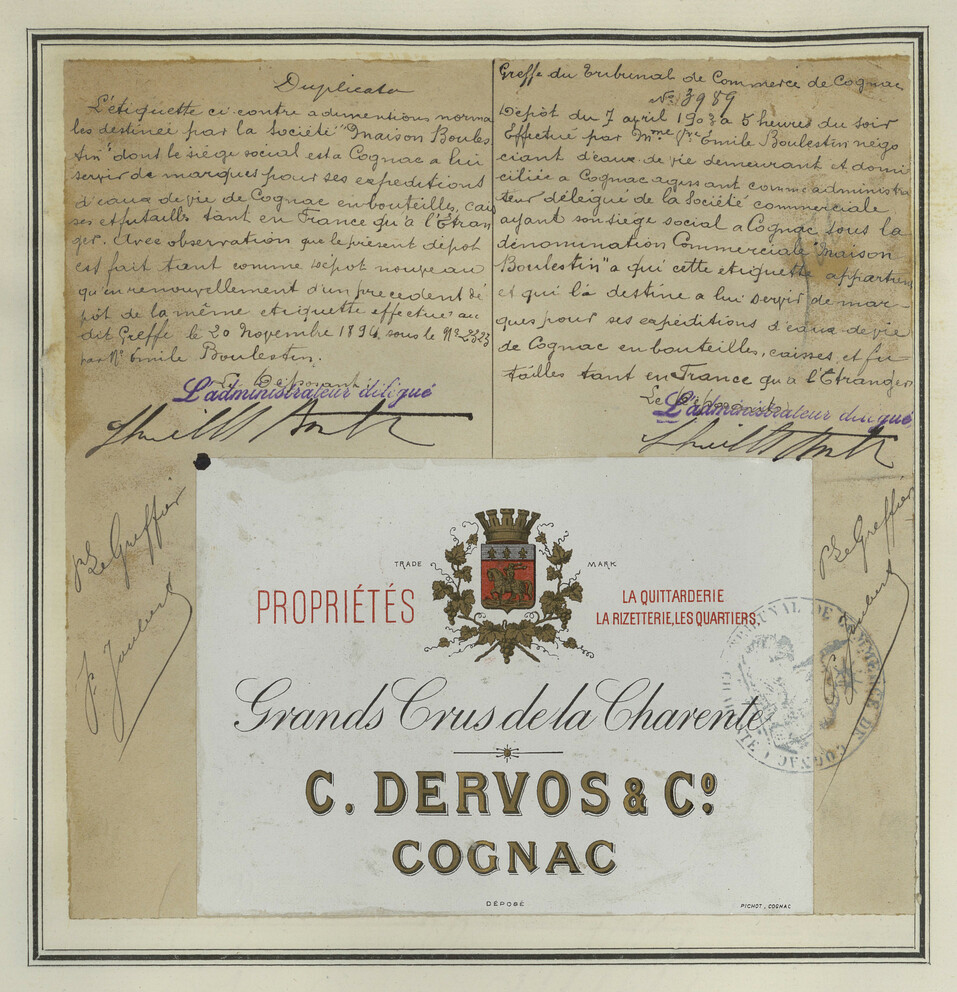 Duplicata
L'étiquette ci-contre a dimentions norma
les destinée par la Société "Maison Boules
tin" dont le siége social est a Cognac a lui
servir de marques pour ses expeditions
d'eaux de vie de Cognac en bouteilles, cais
ses et futailles tant en France qu'à l'Etran
ger. Avec observation que le présent dépôt
est fait tant comme dépôt nouveau
qu'en renouvellement d'un precedent dé
pôt de la même etiquette effectué au
dit Greffe le 20 Novembre 1894 sous le N° 2323
par Mr Emile Boulestin.
Le Déposant
L'administrateur délégué
Greffe du Tribunal de Commerce de Cognac
N° 3989
Dépôt du 7 avril 1903 a 5 heures du soir
Effectué par Mme Vve Emile Boulestin négo
ciant d'eaux de vie demeurant et domi
ciliée a Cognac agissant comme administra
teur délégué de la Société commerciale
ayant son siége social a Cognac sous la
dénomination Commerciale "Maison
Boulestin" a qui cette etiquette appartient
et qui la destine a lui servir de mar-
ques pour ses expéditions d'eaux de vie
de Cognac en bouteilles, caisses, et fu-
tailles tant en France qu'a l'Etranger
Le Déposant
L'administrateur délégué
pr Le Greffier
F. Joubert
pr Le Greffier
F. Joubert
TRADE MARK
PROPRIÉTÉS
LA QUITTARDERIE
LA RIZETTERIE, LES QUARTIERS.
Grands Crus de la Charente
C. DERVOS & Cº
COGNAC
DÉPOSÉ
PICHOT, COGNAC
TRIBUNAL DE COMMERCE DE COGNAC